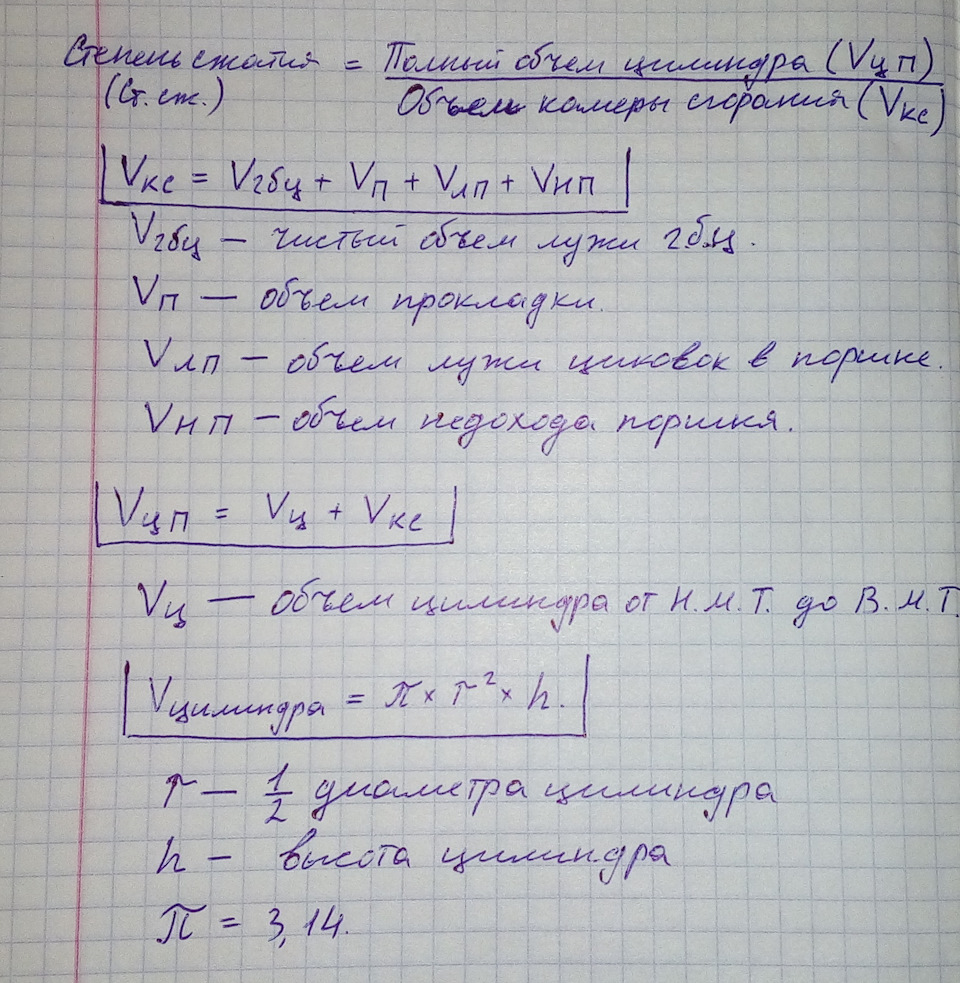 Степень сжатия = Полный объем цилиндра (Vцп)
(Ст. сж.) Объем камеры сгорания (Vкс)
Vкс = Vгбц + Vп + Vлп + Vнп
Vгбц — чистый объем лужи гбц.
Vп — объем прокладки.
Vлп — объем лужи циковок в поршне.
Vнп — объем недохода поршня.
Vцп = Vц + Vкс
Vц — объем цилиндра от Н.М.Т. до В.М.Т.
Vцилиндра = π × r² × h.
r — 1/2 диаметра цилиндра
h — высота цилиндра
π = 3,14.